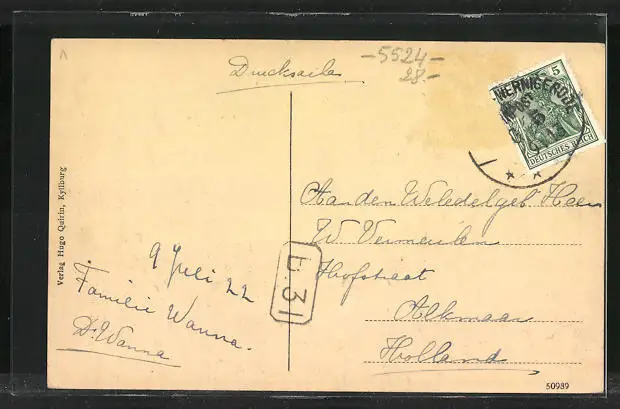 Drucksache
-5524-
28.-
WERNIGERODE
5
DEUTSCHES REICH
Aan den Weledelgeb Heer
W Vermeulen
Hofstraat
Alkmaar
Holland
9 Juli 22
Familie Wanna.
Dr. Wanna
b.31
Verlag Hugo Quirin, Kyllburg
50989